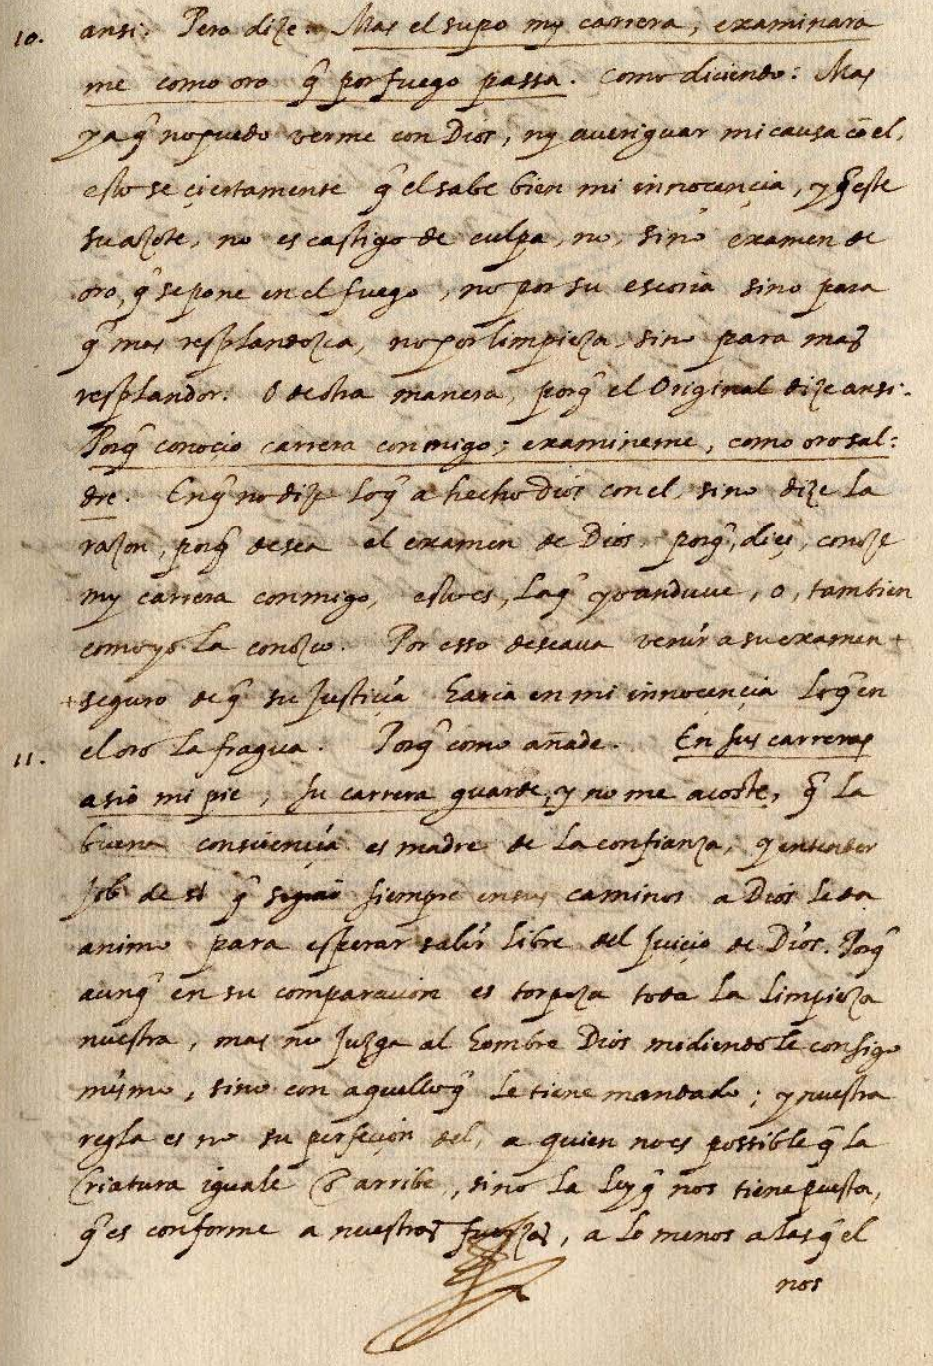 10. ansi. Pero dize. Mas el supo my carrera, examinara
me como oro q̃ por fuego passa. Como diciendo: Mas
ya q̃ no puedo verme con Dios, ny averiguar mi causa cõ el,
esto se çiertamente q̃ el sabe bien mi innocençia, y q̃ este
su açote, no es castigo de culpa, no, sino examen de
oro, q̃ se pone en el fuego, no por su escoria sino para
q̃ mas resplandezca, no por limpieza, sino para mas
resplandor. O de otra manera, porq̃ el Original dize ansi.
Porq̃ conoçio carrera conmigo; examineme, como oro sal:
dre. En q̃ no dize lo q̃ a hecho Dios con el, sino dize la
razon, porq̃ desea el examen de Dios. porq̃, diçe, conoze
my carrera conmigo, esto es, la q̃ yo anduve, o, tambien
como yo la conozco. Por esso deseava venir a su examen +
+ seguro de q̃ su Justiçia haria en mi innocençia lo q̃ en
11. el oro la fragua. Porq̃ como añade. En sus carreras
asio mi pie, su carrera guarde, y no me acoste, q̃ la
buena consciençia es madre de la confianza, y entender
Job de si q̃ siguio siempre en sus caminos a Dios le da
animo para esperar salir libre del Juiçio de Dios. Porq̃
aunq̃ en su comparaçion es torpeza toda la limpieza
nuestra, mas no Juzga al hombre Dios midiendole consigo
mismo, sino con aquello q̃ le tiene mandado; y nuestra
regla es no su perfeçion del, a quien no es possible q̃ la
Criatura iguale o arribe, sino la ley q̃ nos tiene puesta,
q̃ es conforme a nuestras fuerzas, a lo menos a las q̃ el
nos